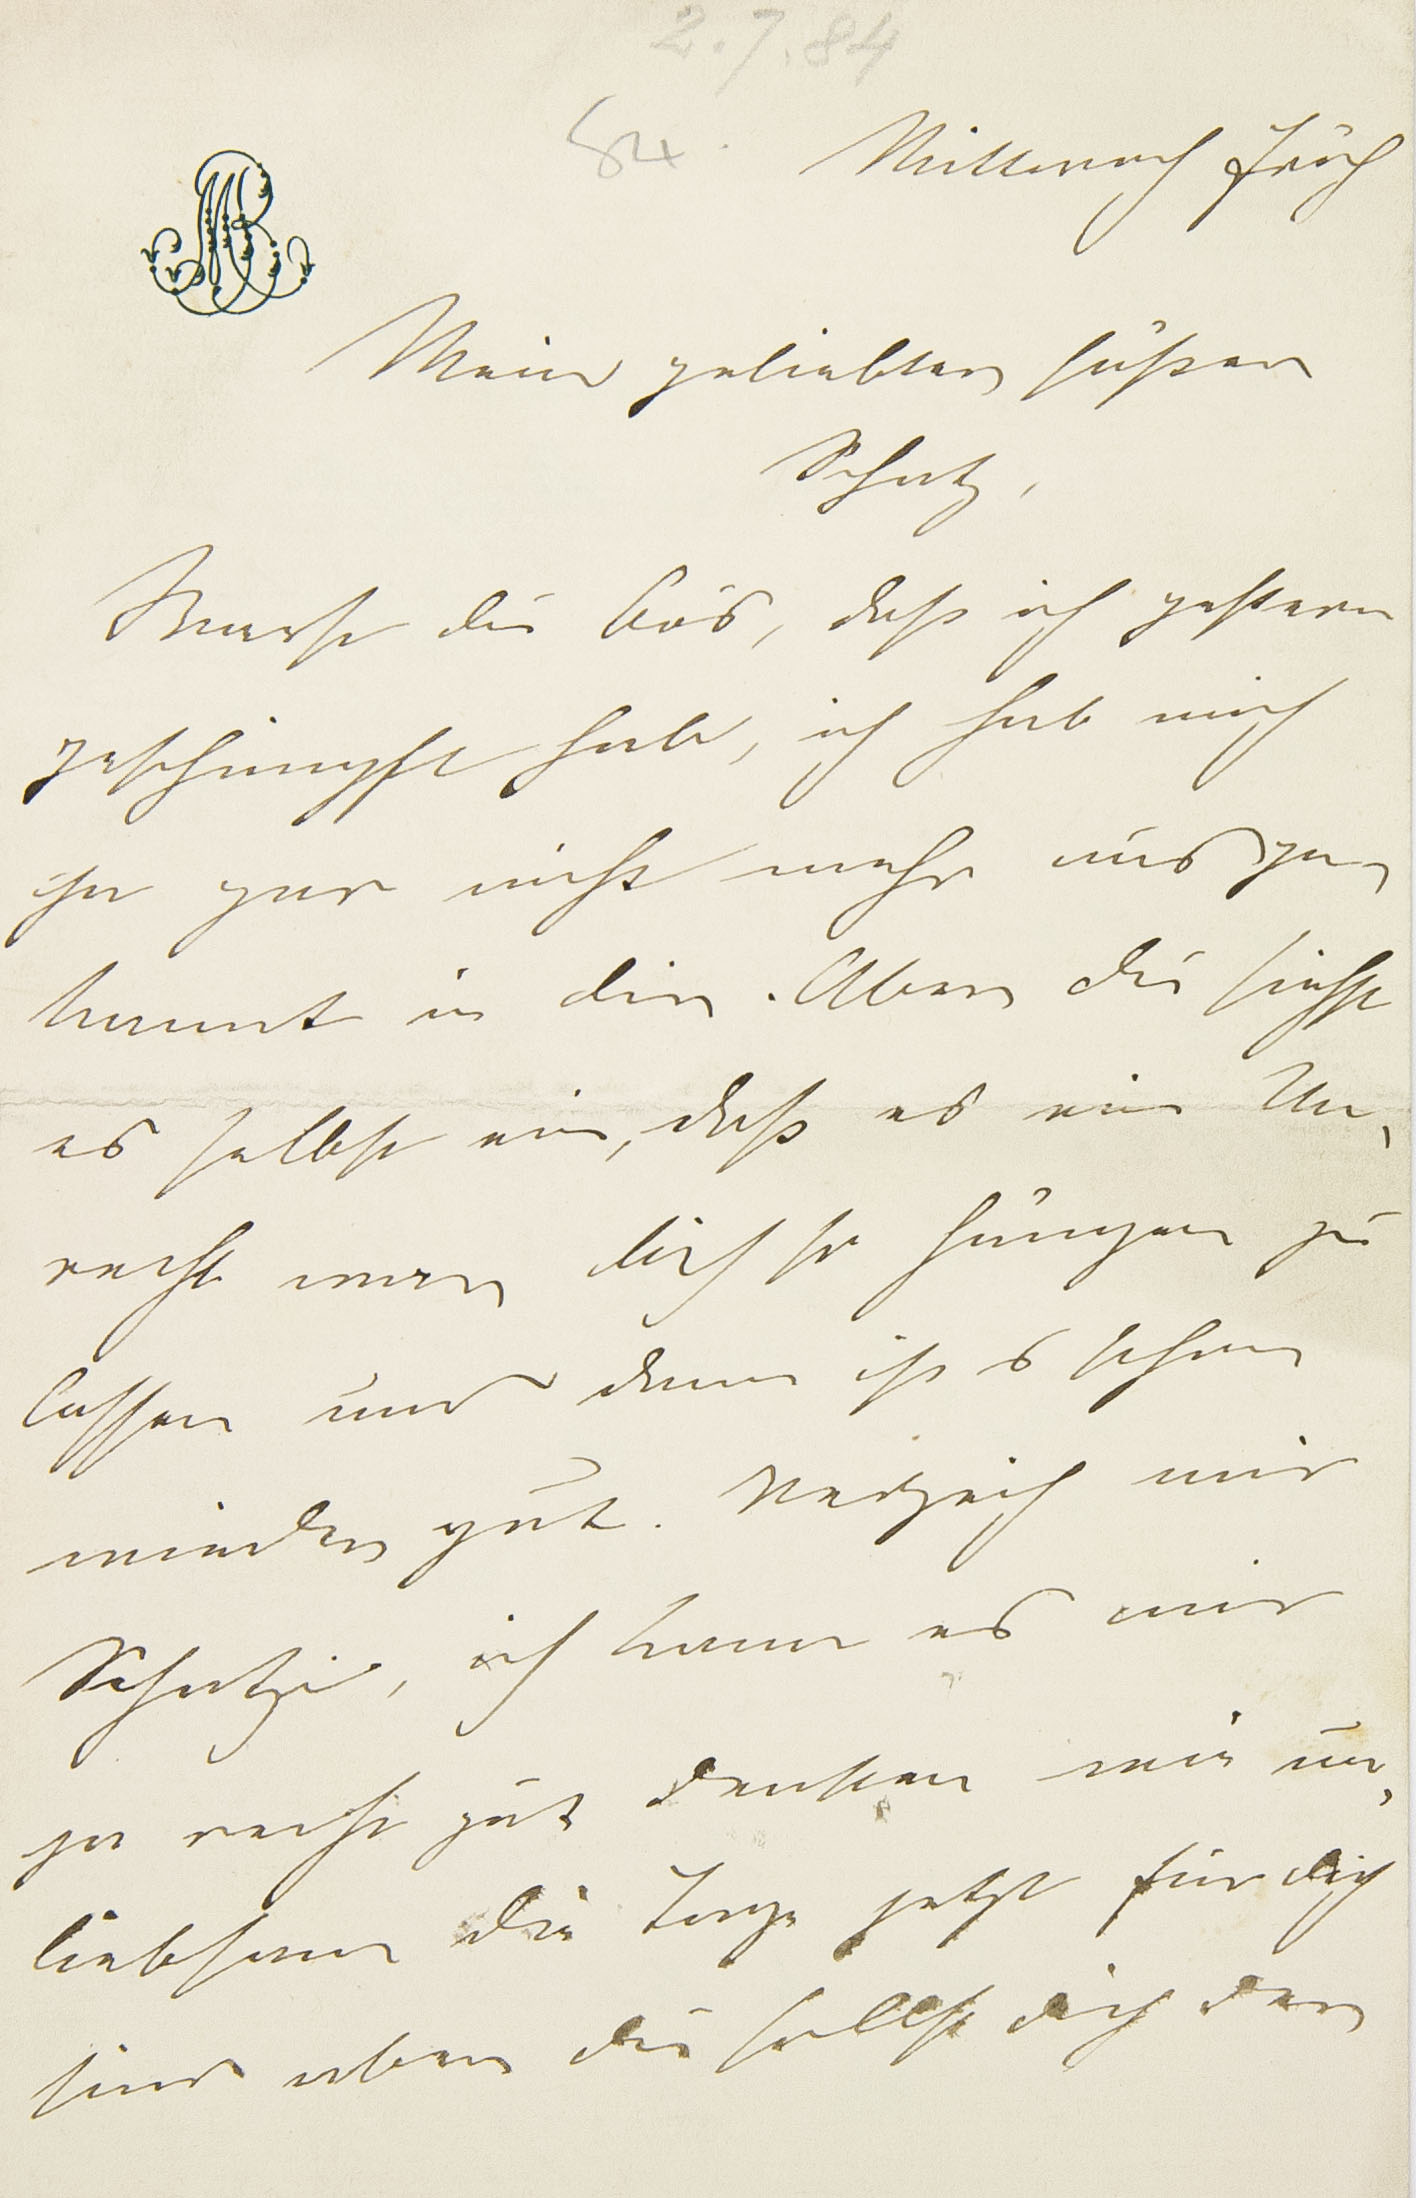 2.7.84
84.
MB
Mittwoch Früh
Mein geliebter süßer
Schatz,
Warst du bös, daß ich gestern
geschimpft habe, ich hab mich
ja gar nicht mehr ausge-
kannt in dir. Aber du siehst
es selbst ein, daß es ein Un-
recht war dich so hungern zu
lassen und dann ist's schon
wieder gut. Verzeih mir
Schatzi, ich kann es mir
ja recht gut denken wie un-
liebsam die Tage jetzt für dich
sind aber du sollst dich der